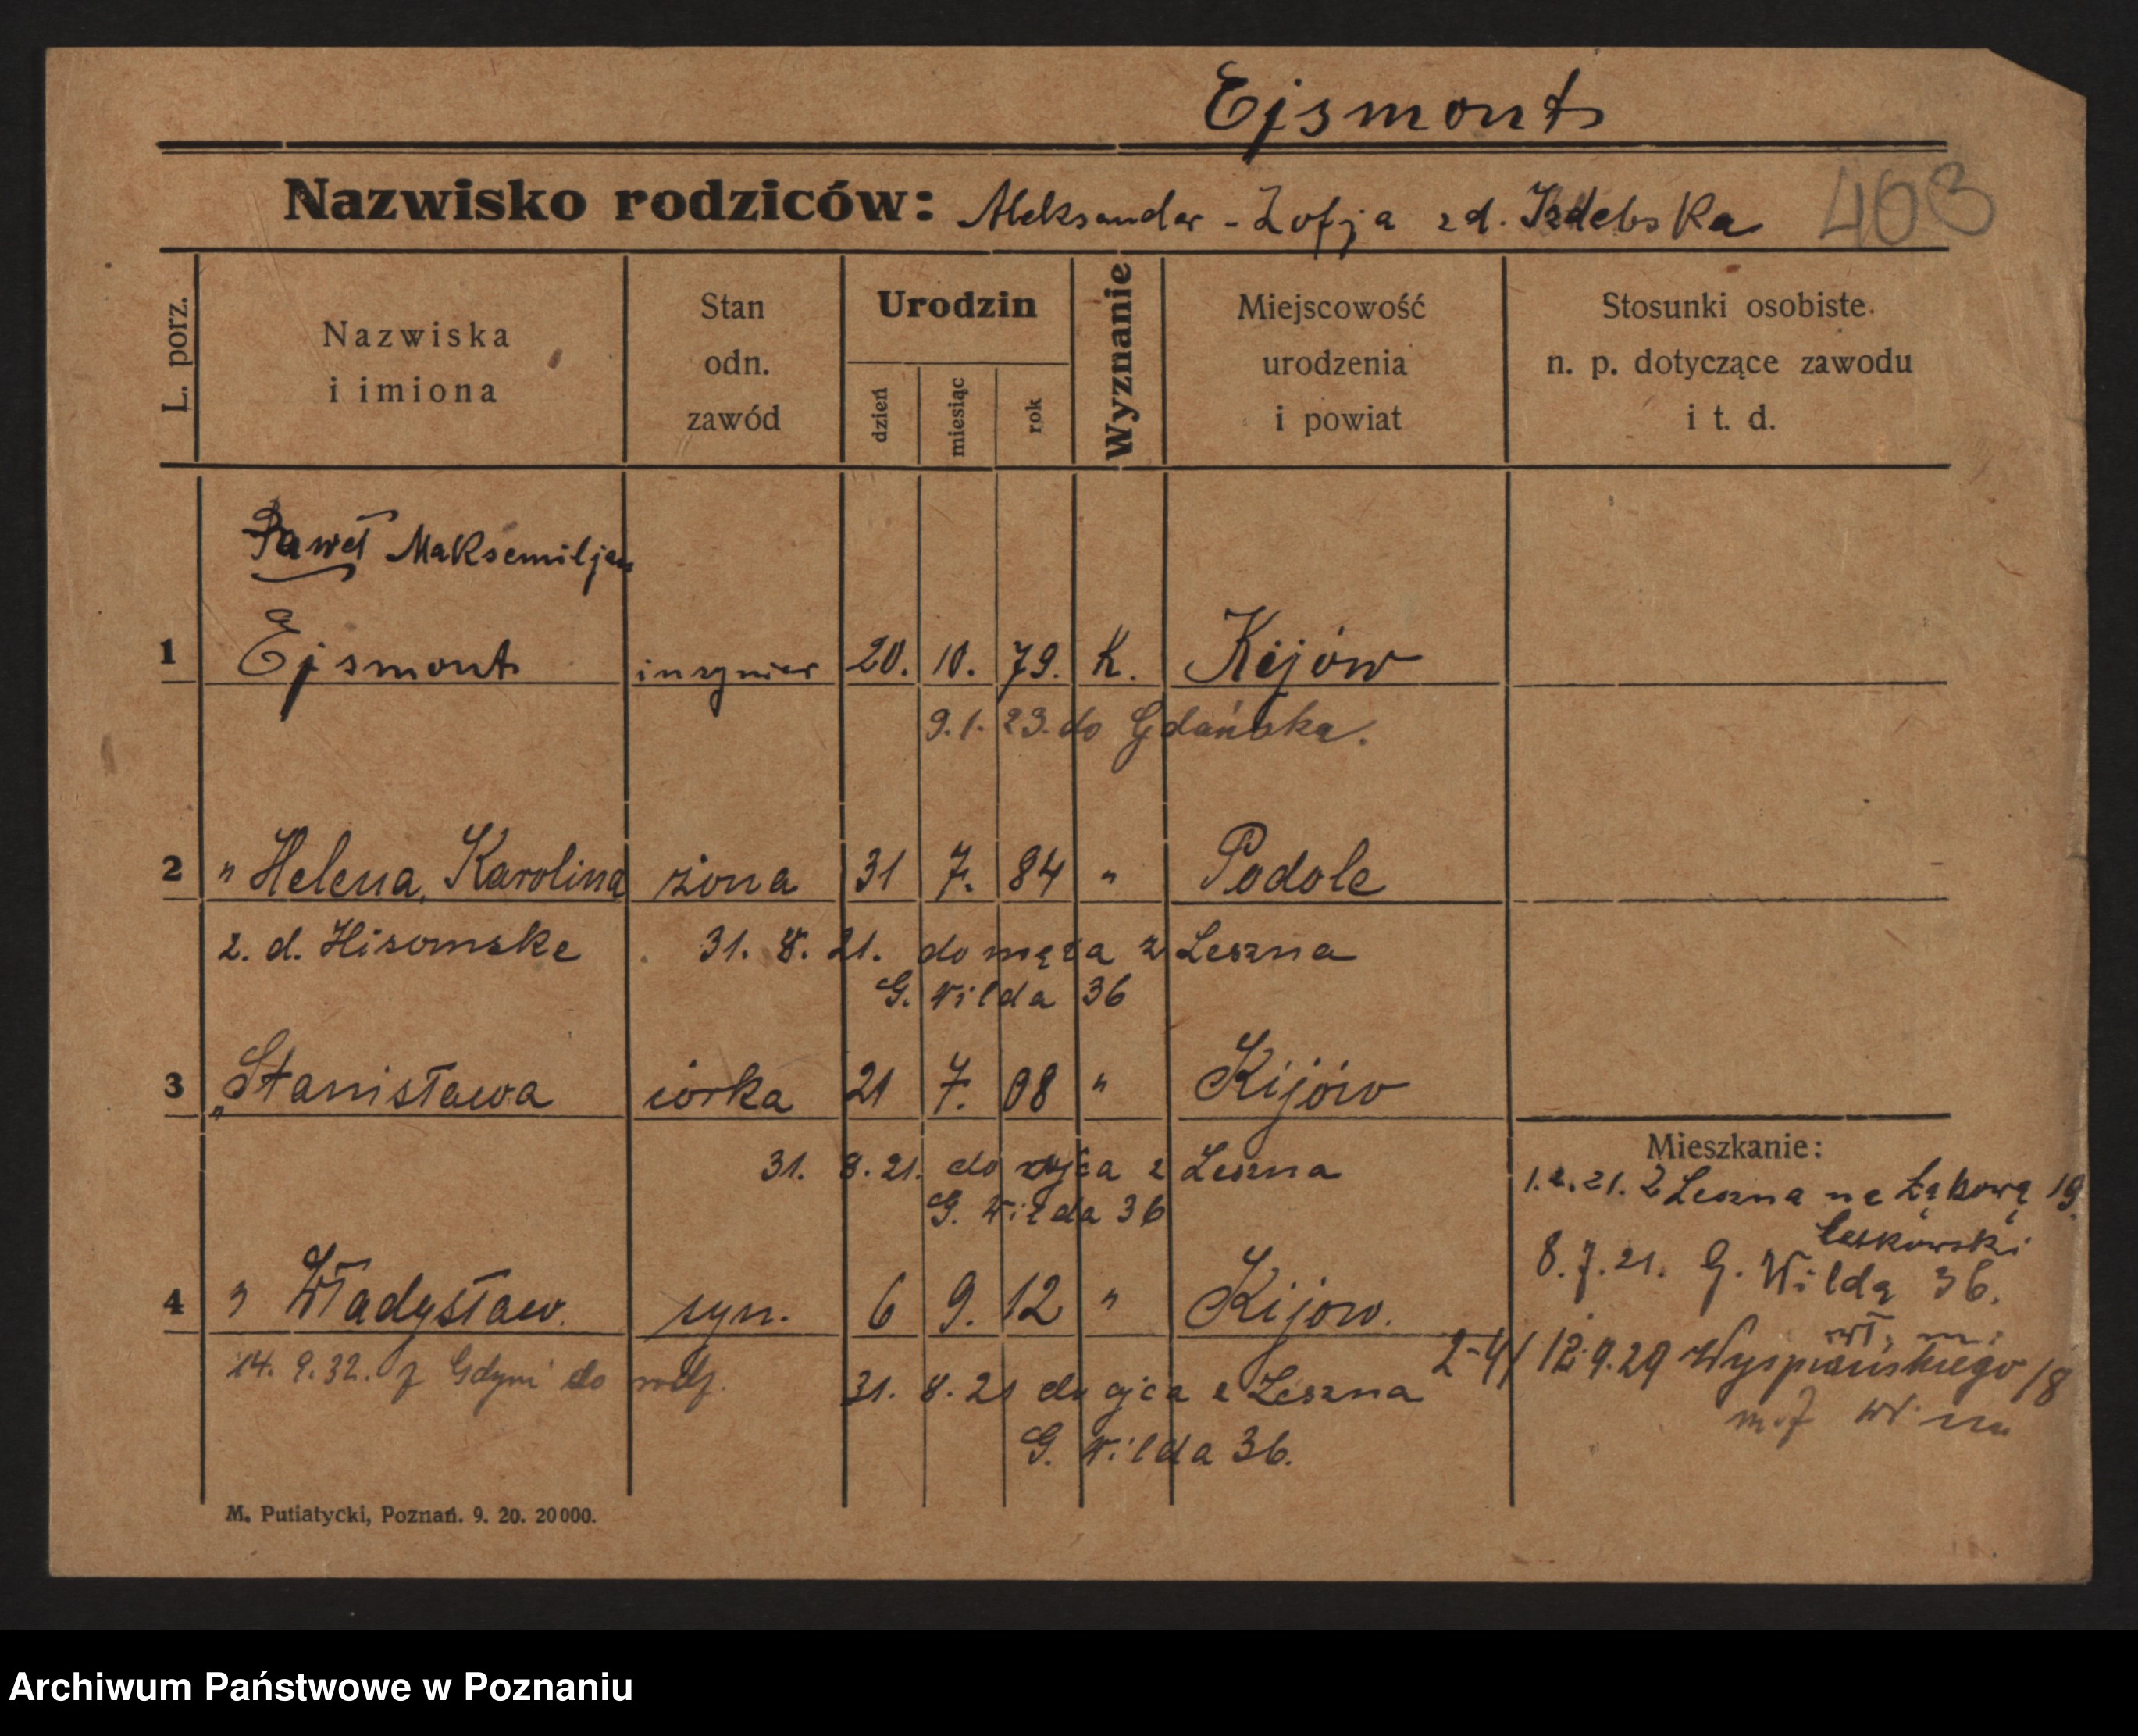 Ejsmont
Nazwisko rodziców: Aleksander - Zofja zd. Izdebska 403
L. porz.
Nazwiska
i imiona
Stan
odn.
zawód
Urodzin
dzień
miesiąc
rok
Wyznanie
Miejscowość
urodzenia
i powiat
Stosunki osobiste.
n. p. dotyczące zawodu
i t. d.
Paweł Maksemiljan
1 Ejsmont inzynier 20. 10. 79. K. Kijów
9. 1. 23. do Gdańska.
2 " Helena, Karolina żona 31 7. 84 " Podole
z. d. Hisomske 31. 8. 21. do męża z Leszna
G. Wilda 36
3 " Stanisława córka 21 7. 08 " Kijów
31. 8. 21. do ojca z Leszna
G. Wilda 36
4 " Władysław. syn. 6 9. 12 " Kijow.
14. 9. 32. z Gdyni do rodz.
31. 8. 21 do ojca z Leszna
G. Wilda 36.
Mieszkanie:
1. 2. 21. Z Leszna na Łąkową 19.
Leskowski
8. 7. 21. G. Wildą 36.
wł. m.
2-4/ 12. 9. 29 Wyspiańskiego 18
M. Putiatycki, Poznań. 9. 20. 20000.
Archiwum Państwowe w Poznaniu